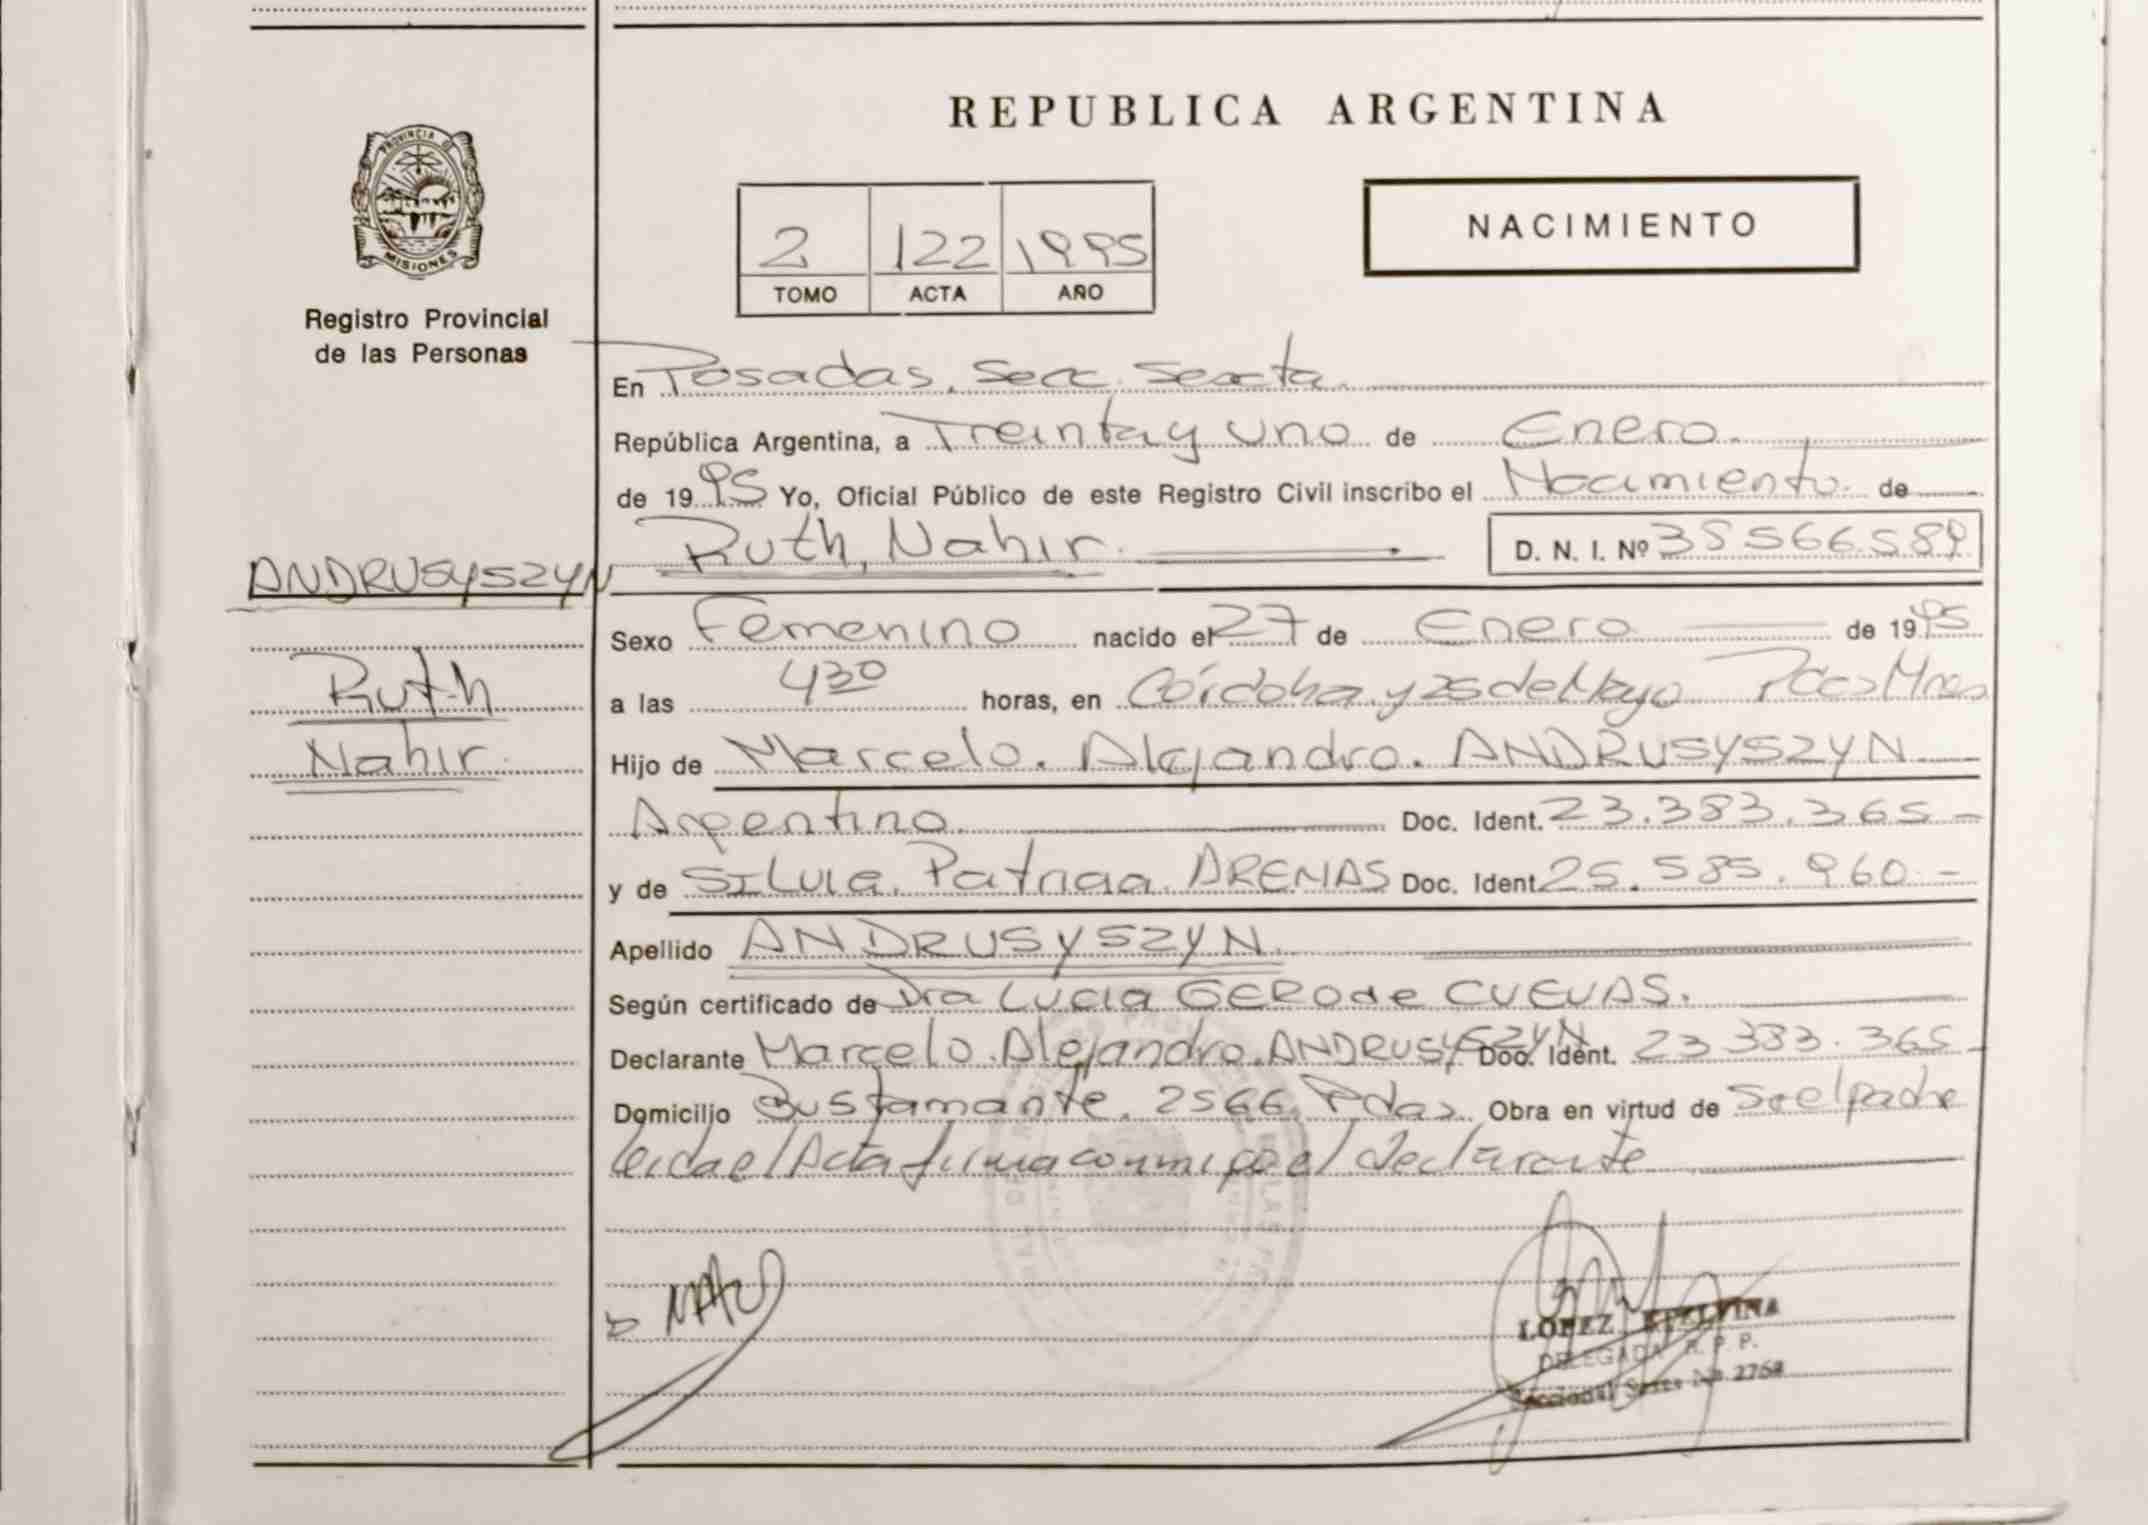 REPUBLICA ARGENTINA
PROVINCIA DE
MISIONES
Registro Provincial
de las Personas
2 122 1995
TOMO ACTA AÑO
NACIMIENTO
En Posadas, Secc. Sexta
República Argentina, a Treinta y uno de Enero
de 1995 Yo, Oficial Público de este Registro Civil inscribo el Nacimiento de
Ruth, Nahir. D. N. I. Nº 38566589
ANDRUSYSZYN
Ruth
Nahir.
Sexo Femenino nacido el 27 de Enero de 1995
a las 430 horas, en Córdoba y 25 de Mayo
Hijo de Marcelo. Alejandro. ANDRUSYSZYN
Argentino. Doc. Ident. 23.383.365-
y de SILVIA. Patricia ARENAS Doc. Ident. 25.585.960-
Apellido ANDRUSYSZYN.
Según certificado de Dra Lucia GERO de CUEVAS.
Declarante Marcelo. Alejandro. ANDRUSYSZYN Doc. Ident. 23 383.365-
Domicilio Bustamante. 2566. Pdas. Obra en virtud de Ser el padre
leida el Acta firma conmigo el declarante
LOPEZ ETELVINA
DELEGADA R. P. P.
Seccional Sexta Nº 2768